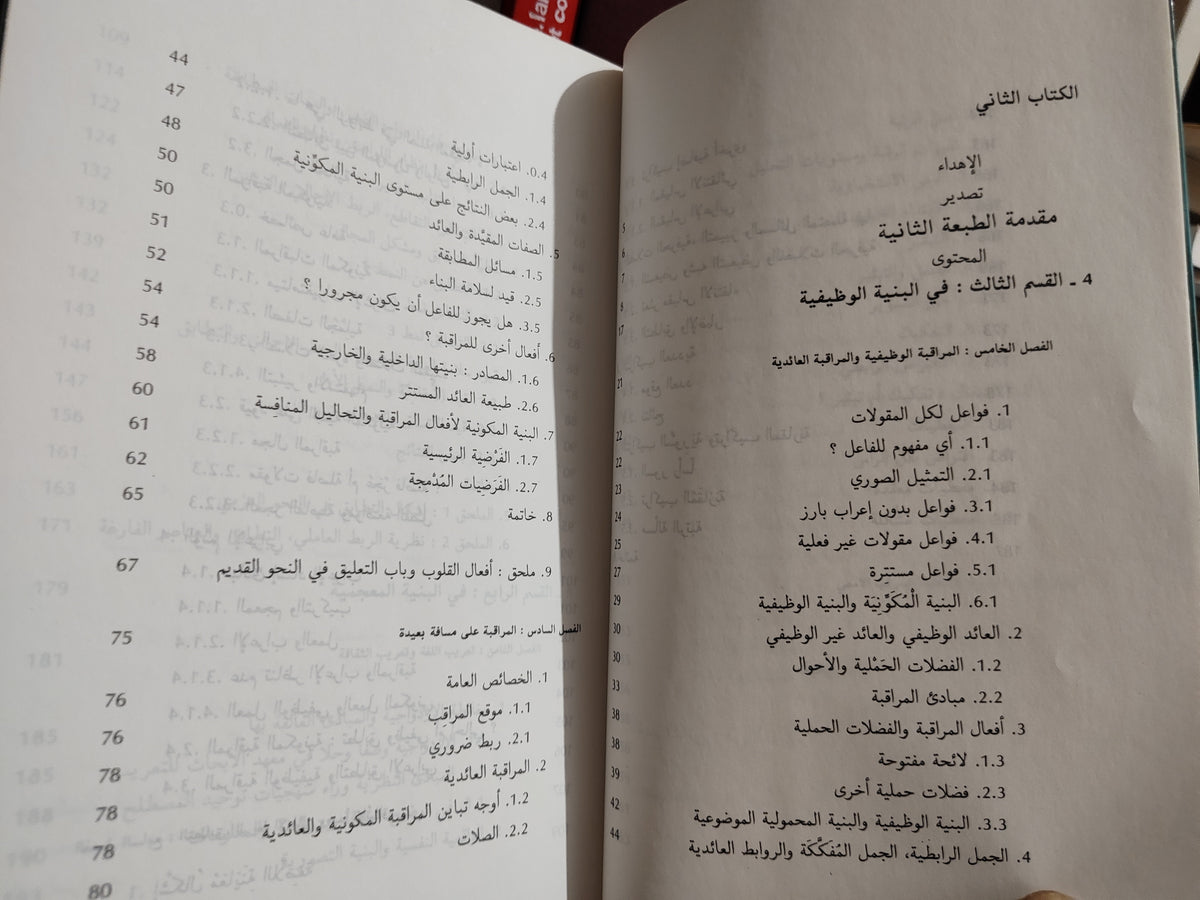 الكتاب الثاني
الإهداء 5
تصدير 6
مقدمة الطبعة الثانية 7
المحتوى 8
4 ـ القسم الثالث : في البنية الوظيفية 17
الفصل الخامس : المراقبة الوظيفية والمراقبة العائدية 21
1. فواعل لكل المقولات 22
1.1. أي مفهوم للفاعل ؟ 22
2.1. التمثيل الصوري 23
3.1. فواعل بدون إعراب بارز 24
4.1. فواعل مقولات غير فعلية 25
5.1. فواعل مستتِرة 27
6.1. البنية الْمُكَوِّنِيَة والبنية الوظيفية 29
2. العائد الوظيفي والعائد غير الوظيفي 30
1.2. الفضلات الحَمْلية والأحوال 30
2.2. مبادئ المراقبة 33
3. أفعال المراقبة والفضلات الحملية 38
1.3. لائحة مفتوحة 38
2.3. فضلات حملية أخرى 39
3.3. البنية الوظيفية والبنية المحمولية الموضوعية 42
4. الجمل الرابطية، الجمل المُفَكَّكَة والروابط العائدية 44
0.4. اعتبارات أولية 44
1.4. الجمل الرابطية 47
2.4. بعض النتائج على مستوى البنية المكوِّنية 48
5. الصفات المقيَّدة والعائد 50
1.5. مسائل المطابقة 50
2.5. قيد لسلامة البناء 51
3.5. هل يجوز للفاعل أن يكون مجرورا ؟ 52
6. أفعال أخرى للمراقبة ؟ 54
1.6. المصادر : بنيتها الداخلية والخارجية 54
2.6. طبيعة العائد المستتر 58
7. البنية المكونية لأفعال المراقبة والتحاليل المنافِسة 60
1.7. الفَرْضِية الرئيسية 61
2.7. الفَرَضيات المُدْمِجة 62
8. خاتمة 65
9. ملحق : أفعال القلوب وباب التعليق في النحو القديم 67
الفصل السادس : المراقبة على مسافة بعيدة 75
1. الخصائص العامة 76
1.1. موقع المراقِب 76
2.1. ربط ضروري 78
2. المراقبة العائدية 78
1.2. أوجه تباين المراقبة المكونية والعائدية 78
2.2. الصلات 80